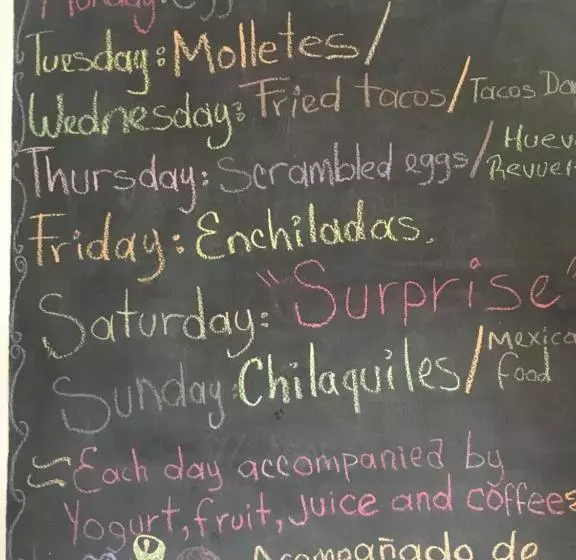 Monday:
Tuesday: Molletes/
Wednesday: Fried tacos/Tacos Do
Thursday: Scrambled eggs/Huev
Revuel
Friday: Enchiladas.
Saturday: "Surprise"
Sunday: Chilaquiles/Mexica
food
Each day accompanied by
Yogurt, fruit, Juice and coffees
Acompañado de